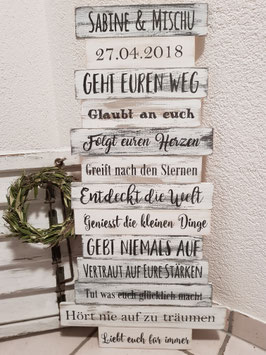 Sabine & Mischu
27.04.2018
Geht euren Weg
Glaubt an euch
Folgt euren Herzen
Greift nach den Sternen
Entdeckt die Welt
Geniesst die kleinen Dinge
Gebt niemals auf
Vertraut auf eure Stärken
Tut was euch glücklich macht
Hört nie auf zu träumen
Liebt euch für immer